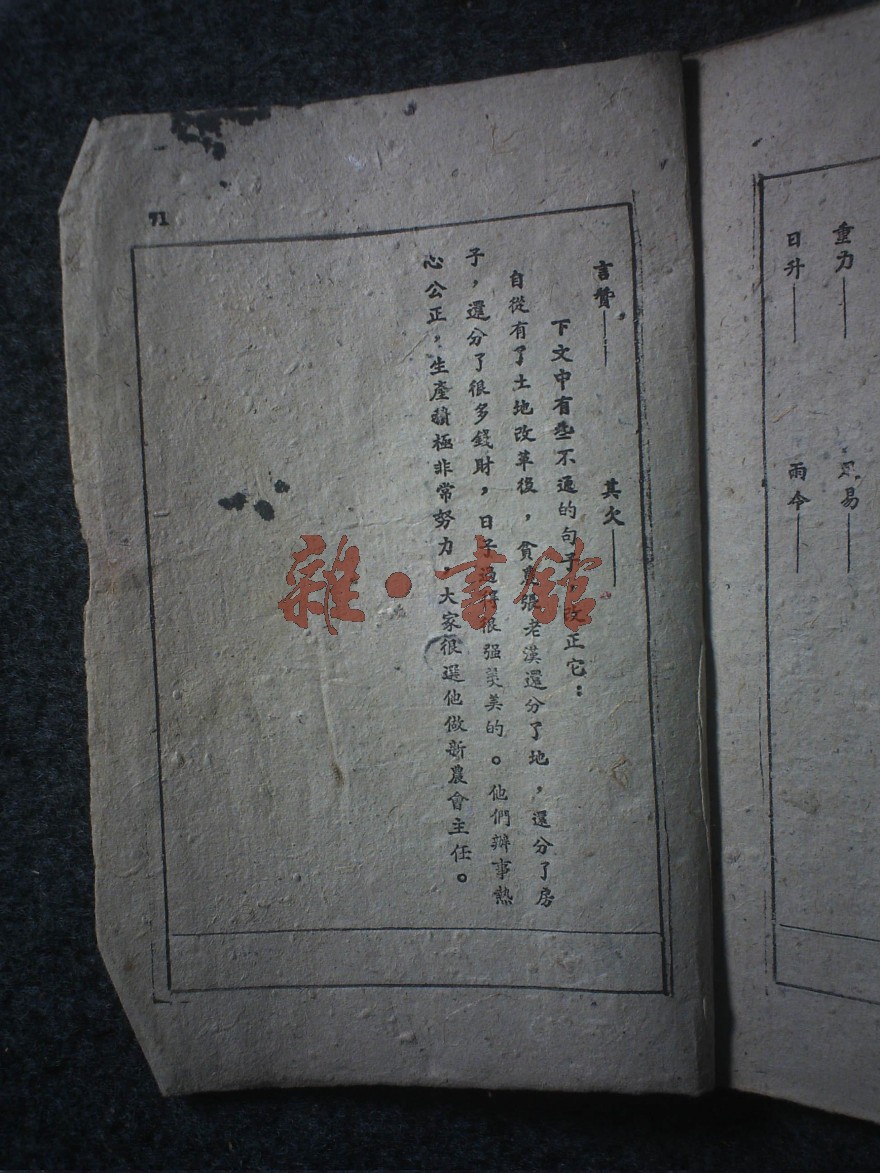 重力—— 貿易——
日升—— 雨令——
71
言贊—— 其欠——
下文中有些不通的句子 改正它：
自從有了土地改革後，貧農張老漢還分了地，還分了房
子，還分了很多錢財，日子過得很强美的。他們辦事熱
心公正，生產積極非常努力，大家很選他做新農會主任。
雜·書館